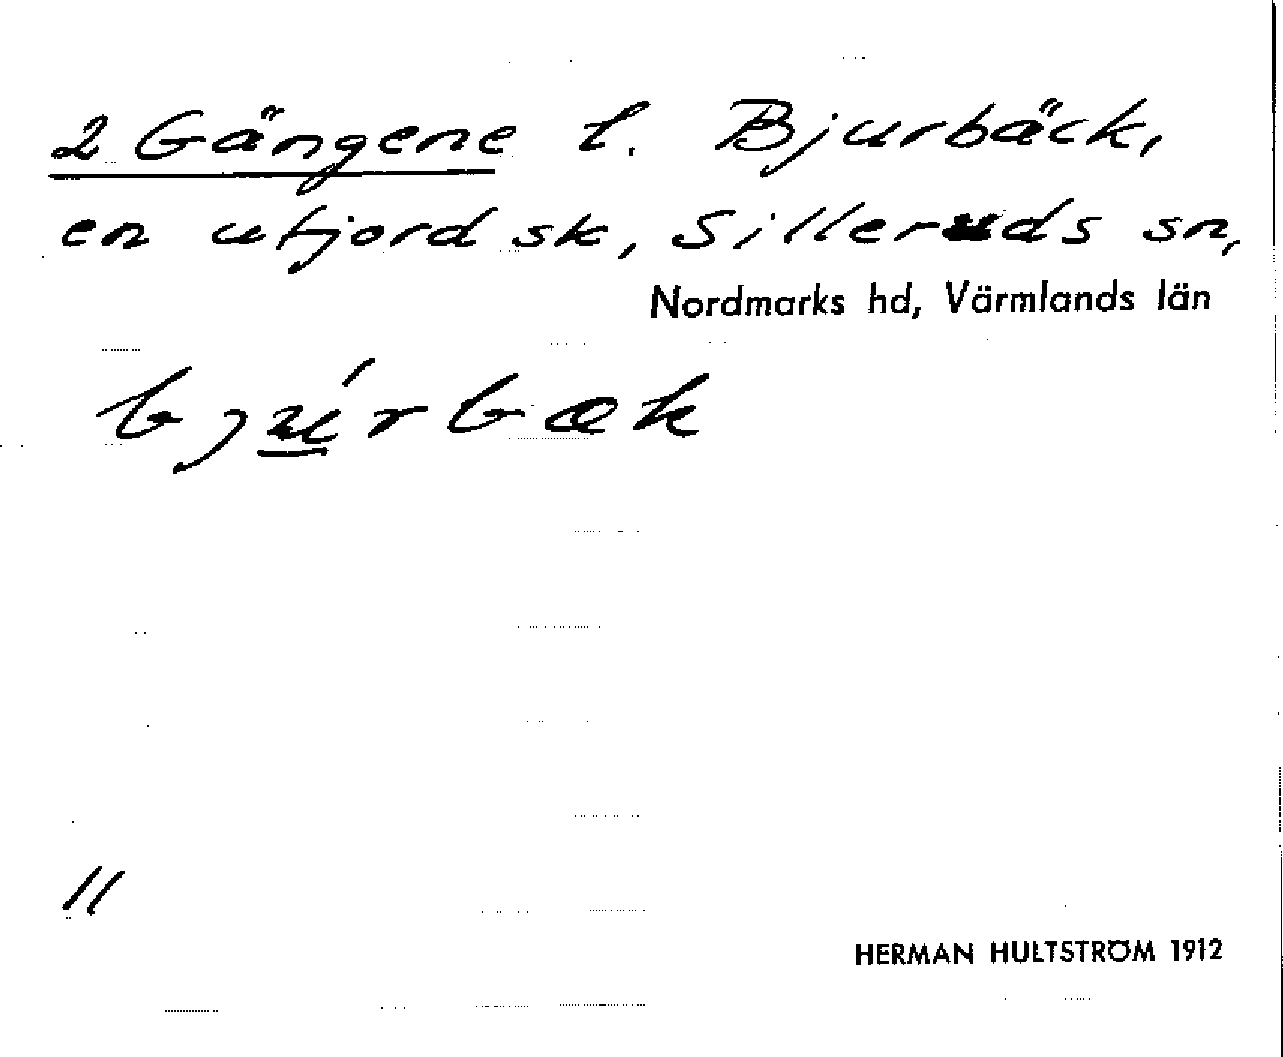 2 Gängene l. Bjurbäck,
en utjord sk, Silleruds sn,
Nordmarks hd, Värmlands län
bjú̲rbæk
11
HERMAN HULTSTRÖM 1912